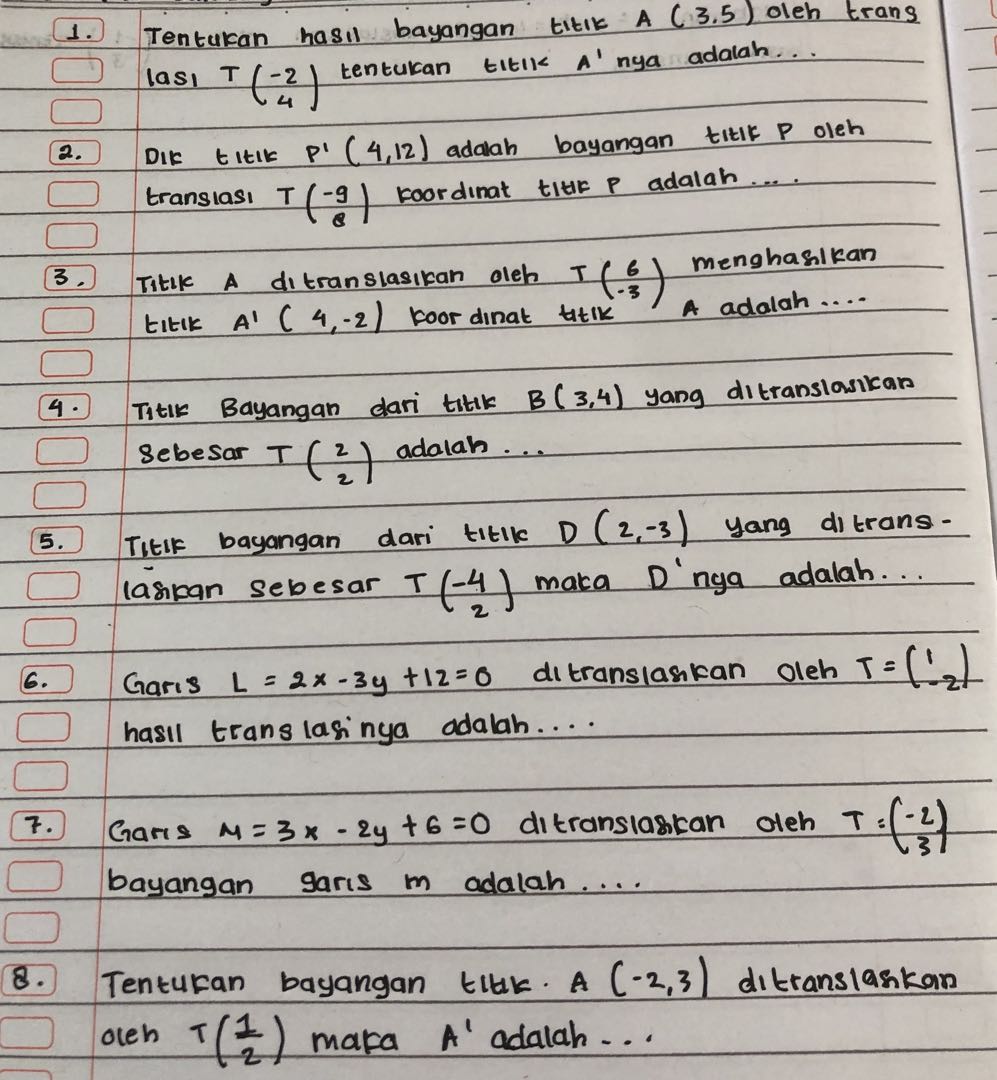 1. Tentukan hasil bayangan titik A (3.5) oleh trans
lasi T (-2 4) tentukan titik A' nya adalah...
2. Dik titik P' (4,12) adalah bayangan titik P oleh
translasi T (-9 8) koordinat titik P adalah ....
3. Titik A ditranslasikan oleh T (6 -3) menghasilkan
titik A' (4,-2) koordinat titik A adalah ....
4. Titik Bayangan dari titik B (3,4) yang ditranslasikan
sebesar T (2 2) adalah ...
5. Titik bayangan dari titik D (2,-3) yang ditrans-
lasikan sebesar T (-4 2) maka D'nya adalah...
6. Garis L = 2x - 3y + 12 = 0 ditranslasikan oleh T = (1 -2)
hasil translasinya adalah....
7. Garis M = 3x - 2y + 6 = 0 ditranslasikan oleh T = (-2 3)
bayangan garis m adalah ....
8. Tentukan bayangan titik. A (-2,3) ditranslasikan
oleh T (1/2) maka A' adalah ...